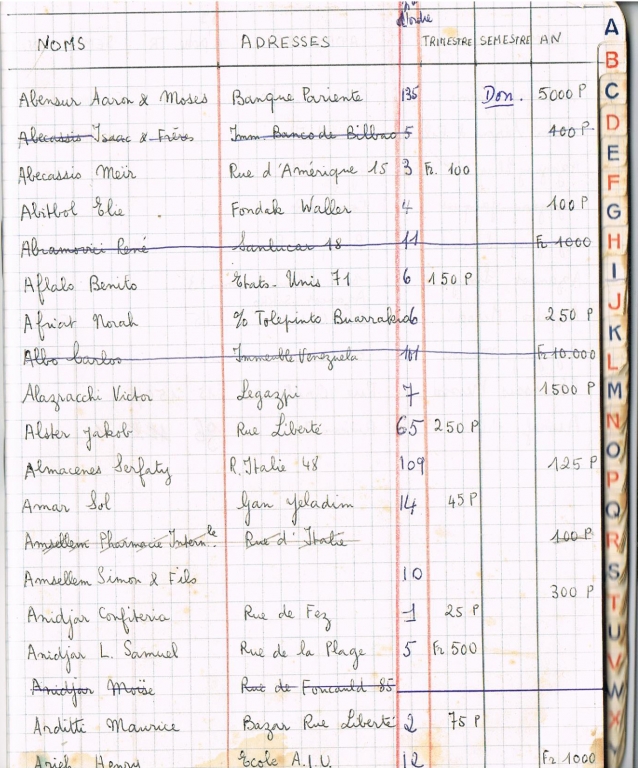 N° d'ordre
NOMS ADRESSES TRIMESTRE SEMESTRE AN
Abensur Aaron & Moses Banque Pariente 135 Don. 5000 P
Abecassis Isaac & Frères Imm. Banco de Bilbao 5 400 P
Abecassio Meïr Rue d'Amérique 15 3 Fr. 100
Abitbol Elie Fondak Waller 4 100 P
Abramovici René Sanlucar 18 11 Fr 1000
Aflalo Benito Etats-Unis 71 6 150 P
Afriat Norah % Tolepinto Buarrakia 6 250 P
Albo Carlos Immeuble Venezuela 101 Fr 10.000
Alazracchi Victor Legazpi 7 1500 P
Alster Jakob Rue Liberté 65 250 P
Almacenes Serfaty R. Italie 48 109 125 P
Amar Sol Gan Yeladim 14 45 P
Amsellem Pharmacie Intern.le Rue d'Italie 100 P
Amsellem Simon & Fils 10
300 P
Anidjar Confiteria Rue de Fez 1 25 P
Anidjar L. Samuel Rue de la Plage 5 Fr 500
Anidjar Moïse Rue de Foucauld 85
Arditti Maurice Bazar Rue Liberté 2 75 P
Ariel Henry Ecole A.I.U. 12 Fr 1000
A
B
C
D
E
F
G
H
I
J
K
L
M
N
O
P
Q
R
S
T
U
V
W
X